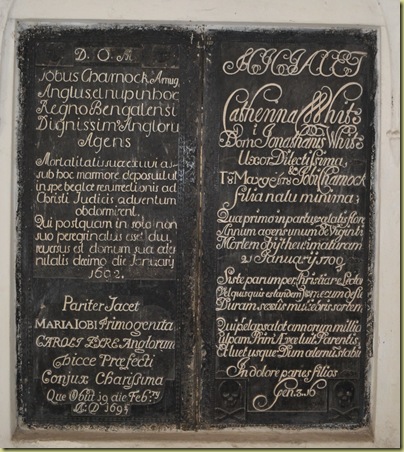 D. O. M
Jobus Charnock Armig
Anglus et nup in hoc
Regno Bengalensi
Dignissim Anglorū
Agens
Mortalitatis suæ exuvias
sub hoc marmore deposuit ut
in spe beatæ resurrectionis ad
Christi Judicis adventum
obdormirent.
Qui postquam in solo non
suo peregrinatus esset diu,
reversus est domum suæ æter-
nitatis decimo die January
1692.
Pariter Jacet
MARIA IOBI Primogenita
CAROLI EYRE Anglorum
hicce Præfecti
Conjux Charissima
Que Obiit 19 die Feb:ry
A:D 1696
HIC JACET
Catherina White
Dom: Jonathanis White
Uxor Dilectissima,
Jobi Charnock
filia natu minima;
Qua primo in partu et ætatis flore
Annum agens unum de Viginti
Mortem obijt heu immaturam
21 January 1700
Siste parumper, Christiane Lector
Duram sexus muliebris sortem
Qui per elapsa tot annorum millia
culpam Primæ Evæ luit Parentis,
Et luet usque Dum æternum stabit
In dolore paries filios
Gen. 3.16